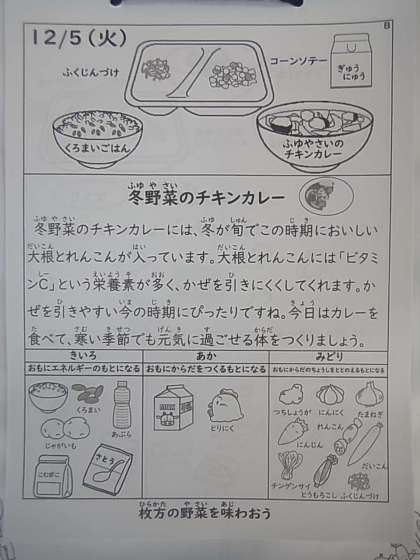 B
12/5(火)
ふくじんづけ
コーンソテー
ぎゅうにゅう
くろまいごはん
ふゆやさいの
チキンカレー
冬野菜のチキンカレー
冬野菜のチキンカレーには、冬が旬でこの時期においしい
大根とれんこんが入っています。大根とれんこんには「ビタミ
ンC」という栄養素が多く、かぜを引きにくくしてくれます。か
ぜを引きやすい今の時期にぴったりですね。今日はカレーを
食べて、寒い季節でも元気に過ごせる体をつくりましょう。
きいろ
おもにエネルギーのもとになる
くろまい
じゃがいも
あぶら
こむぎこ
さとう
あか
おもにからだをつくるもとになる
とりにく
みどり
おもにからだのちょうしをととのえるもとになる
つちしょうが
にんにく
たまねぎ
にんじん
れんこん
だいこん
チンゲンサイ
とうもろこし
ふくじんづけ
枚方の野菜を味わおう